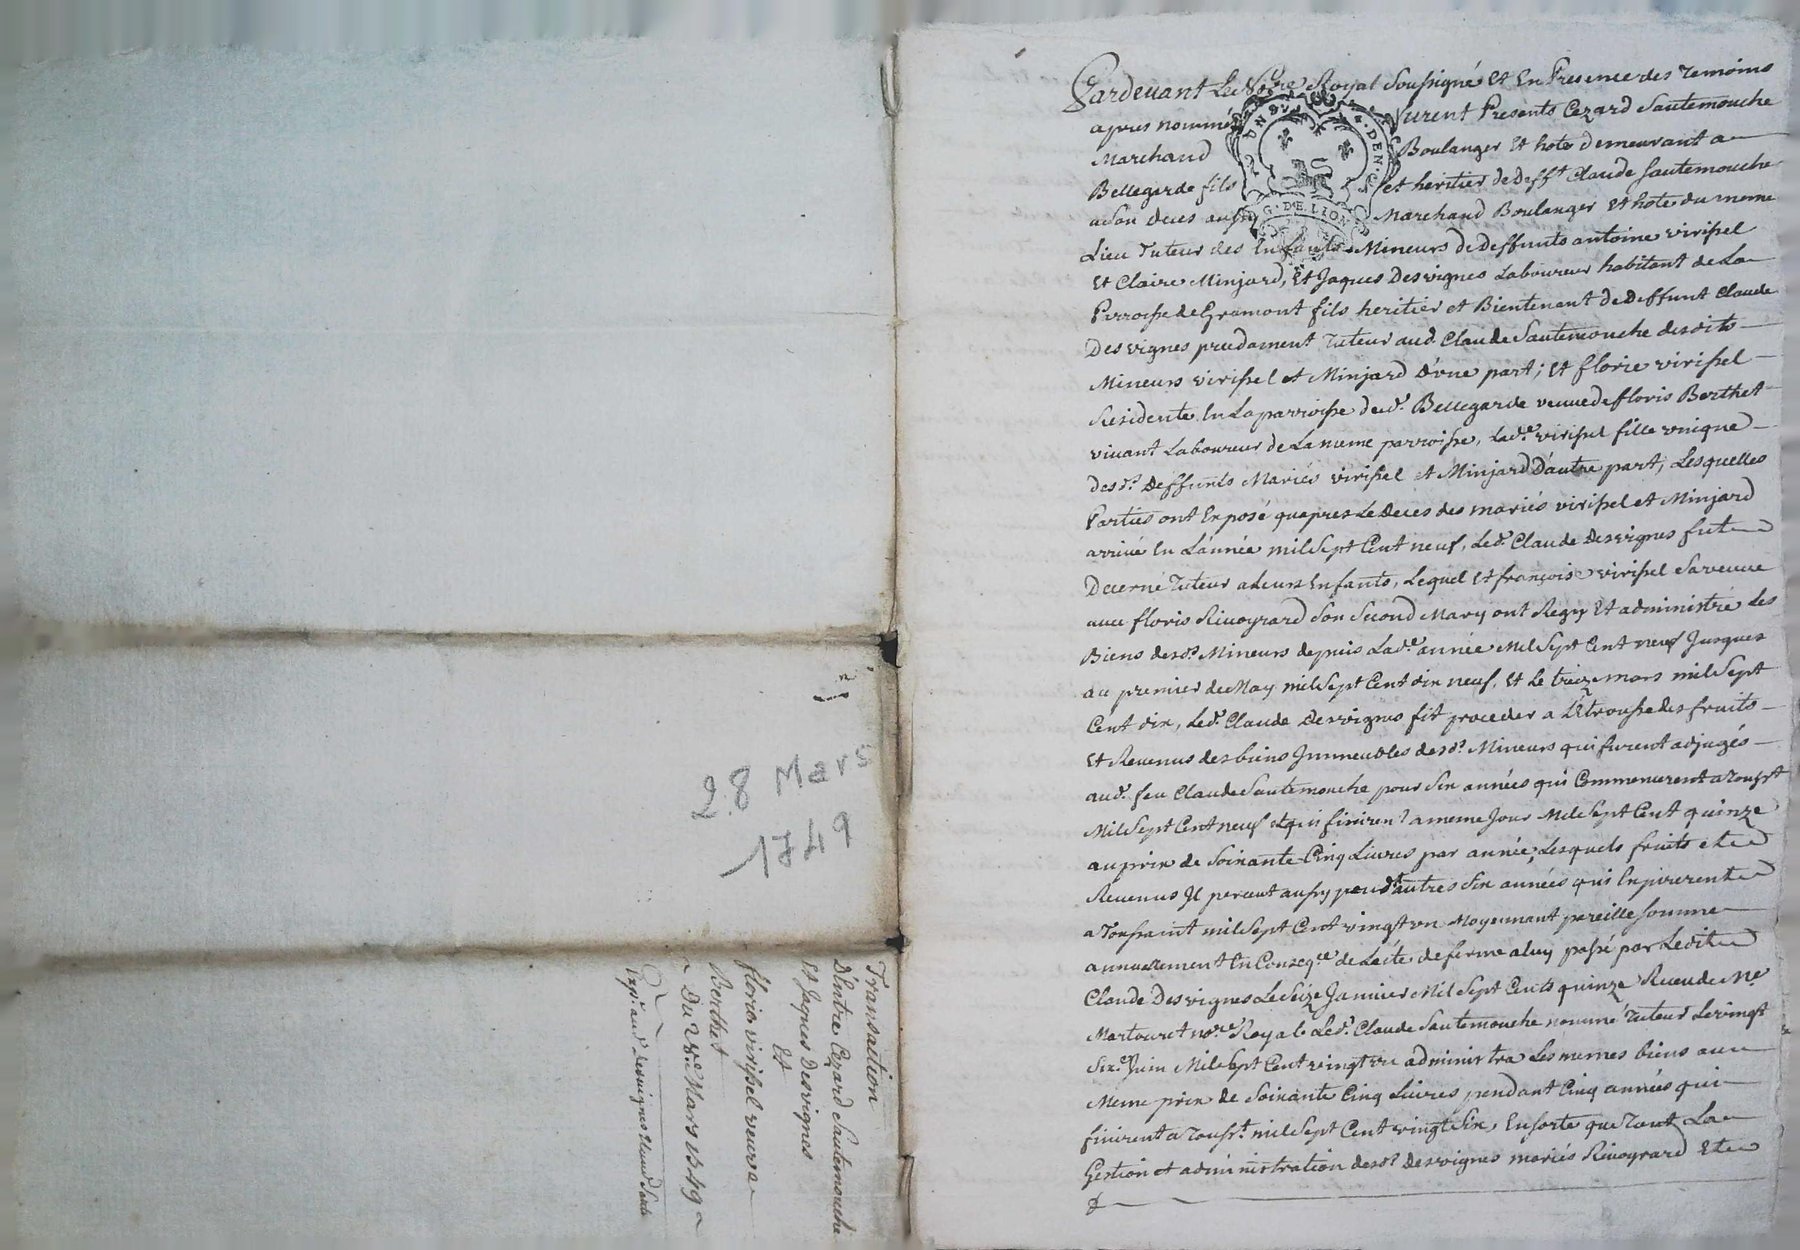 28 Mars
1749
Transaction
D'Entre Cezard Sautemouche
Et Jaques Desvignes
Et
florie virissel veuve a
Berthet
Du 28e Mars 1749
Pardevant Le Nore Royal Soussigné Et En Presence des Temoins
apres nommés furent Presents Cezard Sautemouche
Marchand Boulanger Et hote demeurant a
Bellegarde fils et heritier de Defft Claude Sautemouche
a son deces aussy Marchand Boulanger Et hote du meme
Lieu Tuteur des Enfants Mineurs de deffunts antoine virissel
Et Claire Minjard, Et Jaques Desvignes Laboureur habitant de La
Parroisse de Gramont fils heritier et Bientenant de Deffunt Claude
Desvignes precedament Tuteur aud. Claude Sautemouche desdits
Mineurs virissel et Minjard D'une part; Et florie virissel
Residente En La parroisse dud. Bellegarde veuve de floris Berthet
vivant Laboureur de La meme parroisse, Lade virissel fille unique
desd. Deffunts Mariés virissel et Minjard D'autre part, Lesquelles
Parties ont Exposé qu'apres Le Deces des mariés virissel et Minjard
arrivé En L'année mil Sept Cent neuf, Led. Claude Desvignes fut
Decerné Tuteur a Leurs Enfants, Lequel Et françoise virissel Sa veuve
avec floris Rivoyrard Son Second Mary ont Regy Et administré Les
Biens desd. Mineurs depuis Lade année Mil Sept Cent neuf Jusques
au premier de May mil Sept Cent dix neuf, Et Le treize mars mil Sept
Cent dix, Led. Claude Desvignes fit proceder a L'Etrousse des fruits
Et Revenus des biens Immeubles desd. Mineurs qui furent adjugés
aud. feu Claude Sautemouche pour Six années qui Commencerent a Toussst
Mil Sept Cent neuf et qui finirent a meme Jour Mil Sept Cent quinze
au prix de Soixante Cinq Livres par année, Lesquels fruits et
Revenus Il percut aussy pend. autres Six années qui Expirerent
a Toussaint mil Sept Cent vingt un Moyennant pareille Somme
annuellement En Conseqce de L'acte de ferme a Luy passé par Ledit
Claude Desvignes Le Seize Janvier Mil Sept Cents quinze Receu de Me
Martouret nore Royal Led. Claude Sautemouche nommé Tuteur Le vingt
Sixe Juin Mil Sept Cent vingt un administra Les memes biens au
Meme prix de Soixante Cinq Livres pendant Cinq années qui
finirent a Tousst mil Sept Cent vingt Six, En sorte que Tant La
Gestion et administration desd. Desvignes mariés Rivoyrard Et